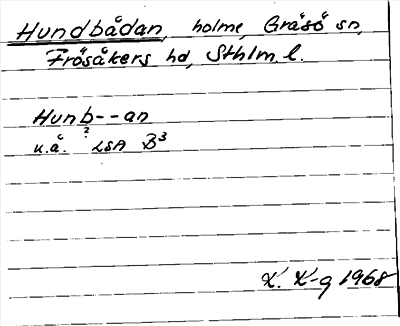 Hundbådan, holme, Gräsö sn,
Frösåkers hd, Sthlm l.
Hunb--an
?
u.å. LSA B3
K. K-g 1968